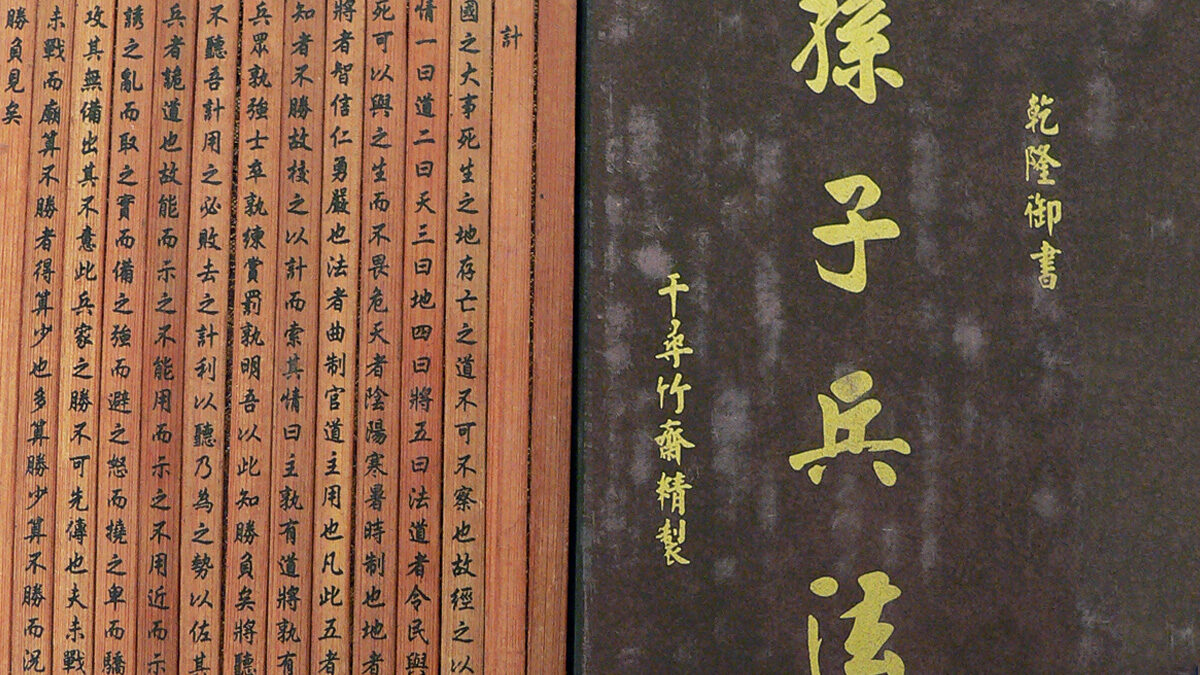 乾隆御書
孫子兵法
千尋竹齋精製
計
國之大事死生之地存亡之道不可不察也故經之以
情一曰道二曰天三曰地四曰將五曰法道者令民與
死可以與之生而不畏危天者陰陽寒暑時制也地者
將者智信仁勇嚴也法者曲制官道主用也凡此五者
知者不勝故校之以計而索其情曰主孰有道將孰有
兵眾孰強士卒孰練賞罰孰明吾以此知勝負矣將聽
不聽吾計用之必敗去之計利以聽乃為之勢以佐其
兵者詭道也故能而示之不能用而示之不用近而示
誘之亂而取之實而備之強而避之怒而撓之卑而驕
攻其無備出其不意此兵家之勝不可先傳也夫未戰
未戰而廟算不勝者得算少也多算勝少算不勝而況
勝負見矣